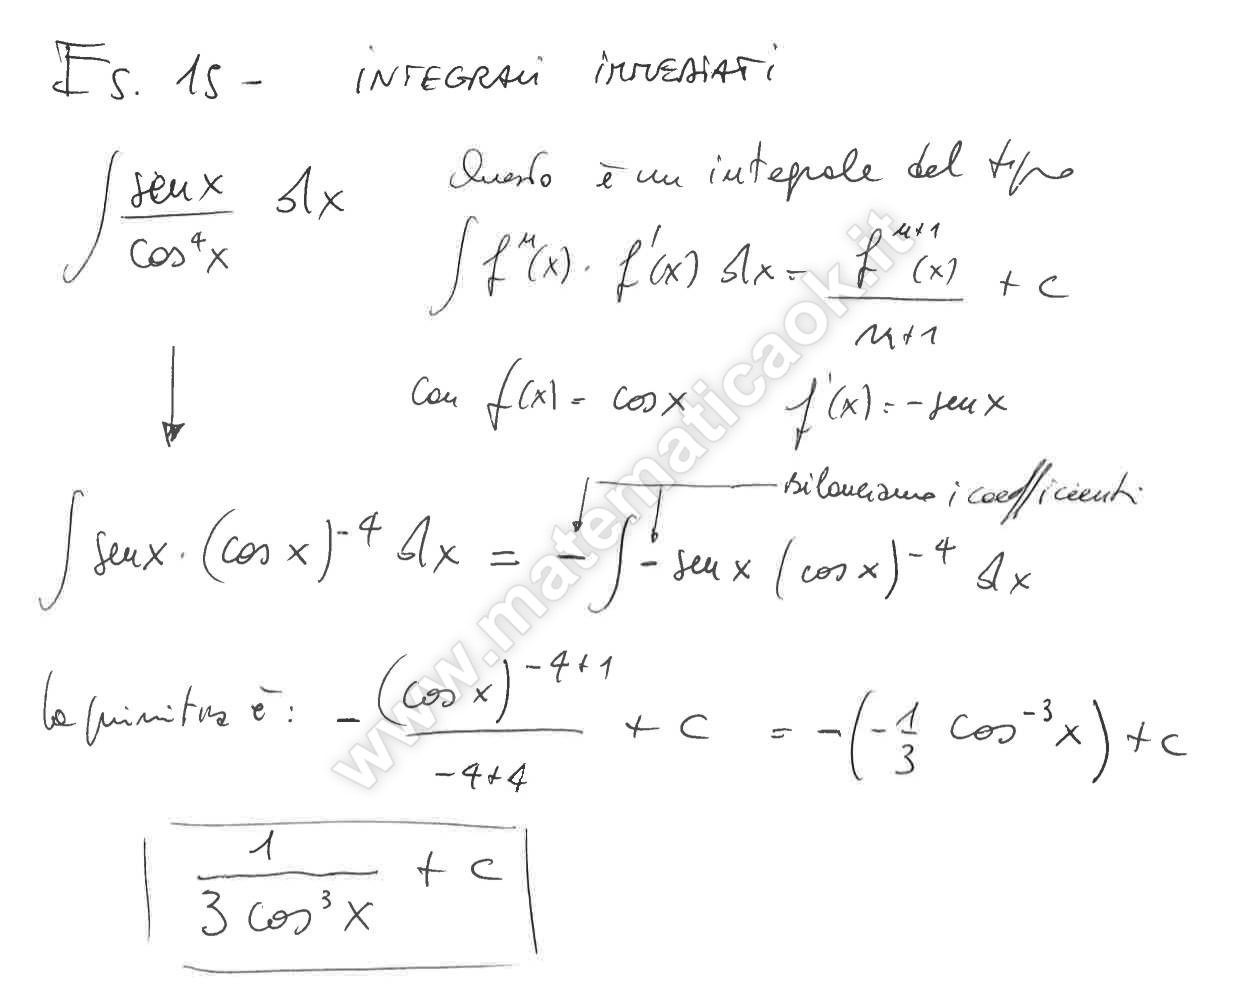 Es. 15 - INTEGRALI IMMEDIATI
∫ sen x / cos⁴x dx
Questo è un integrale del tipo
∫ fⁿ(x) · f'(x) dx = fⁿ⁺¹(x) / n+1 + c
con f(x) = cos x f'(x) = - sen x
bilanciamo i coefficienti
∫ sen x · (cos x)⁻⁴ dx = - ∫ - sen x (cos x)⁻⁴ dx
la primitiva è: - (cos x)⁻⁴⁺¹ / -4+1 + c = -(-1/3 cos⁻³x) + c
1 / 3 cos³x + c
www.matematicaok.it